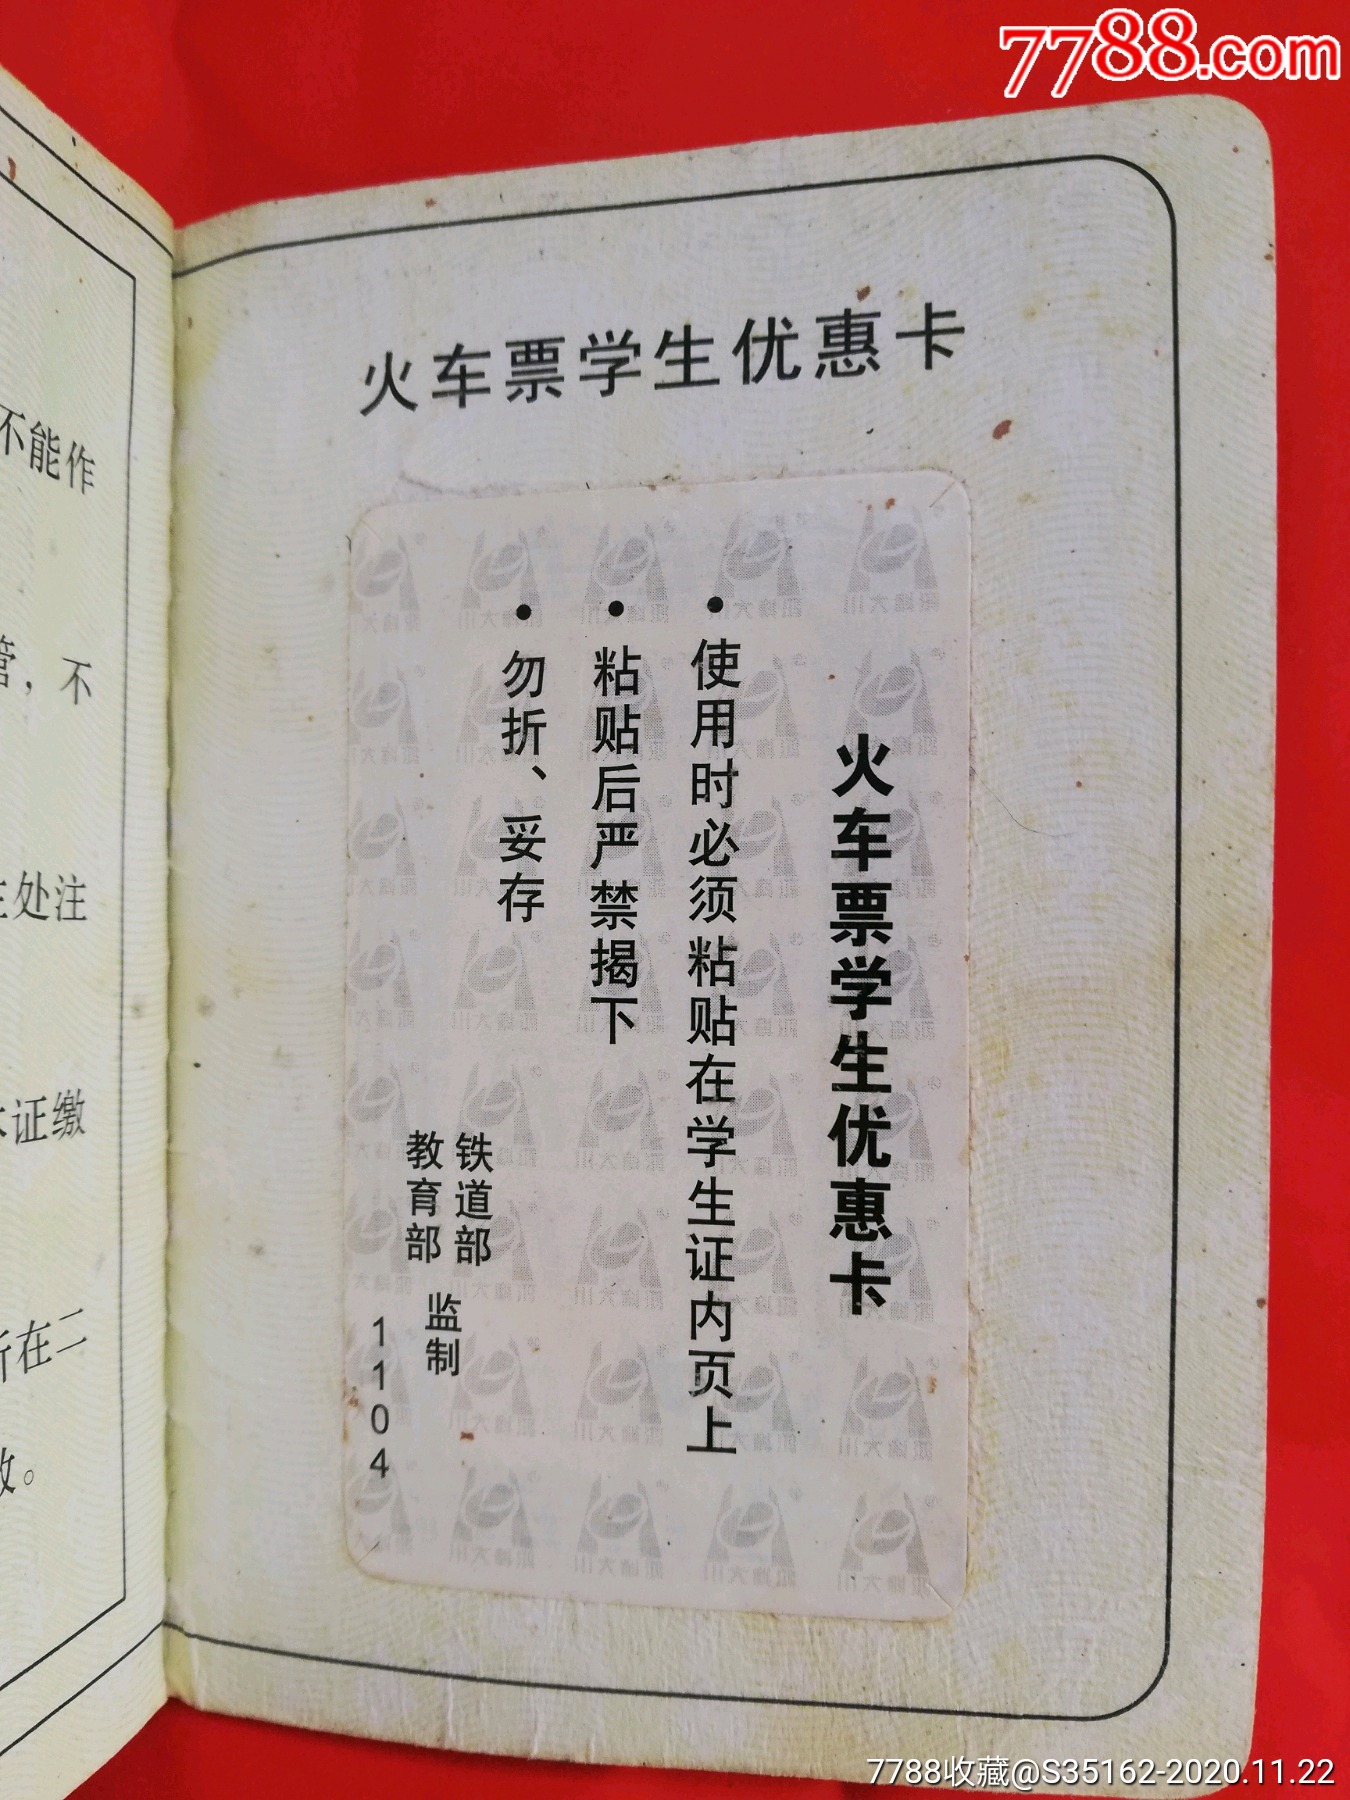 7788.com
不能作
管，不
处注
证缴
在二
火车票学生优惠卡
火车票学生优惠卡
•使用时必须粘贴在学生证内页上
•粘贴后严禁揭下
•勿折、妥存
铁道部
教育部
监制
1104
7788收藏@S35162-2020.11.22